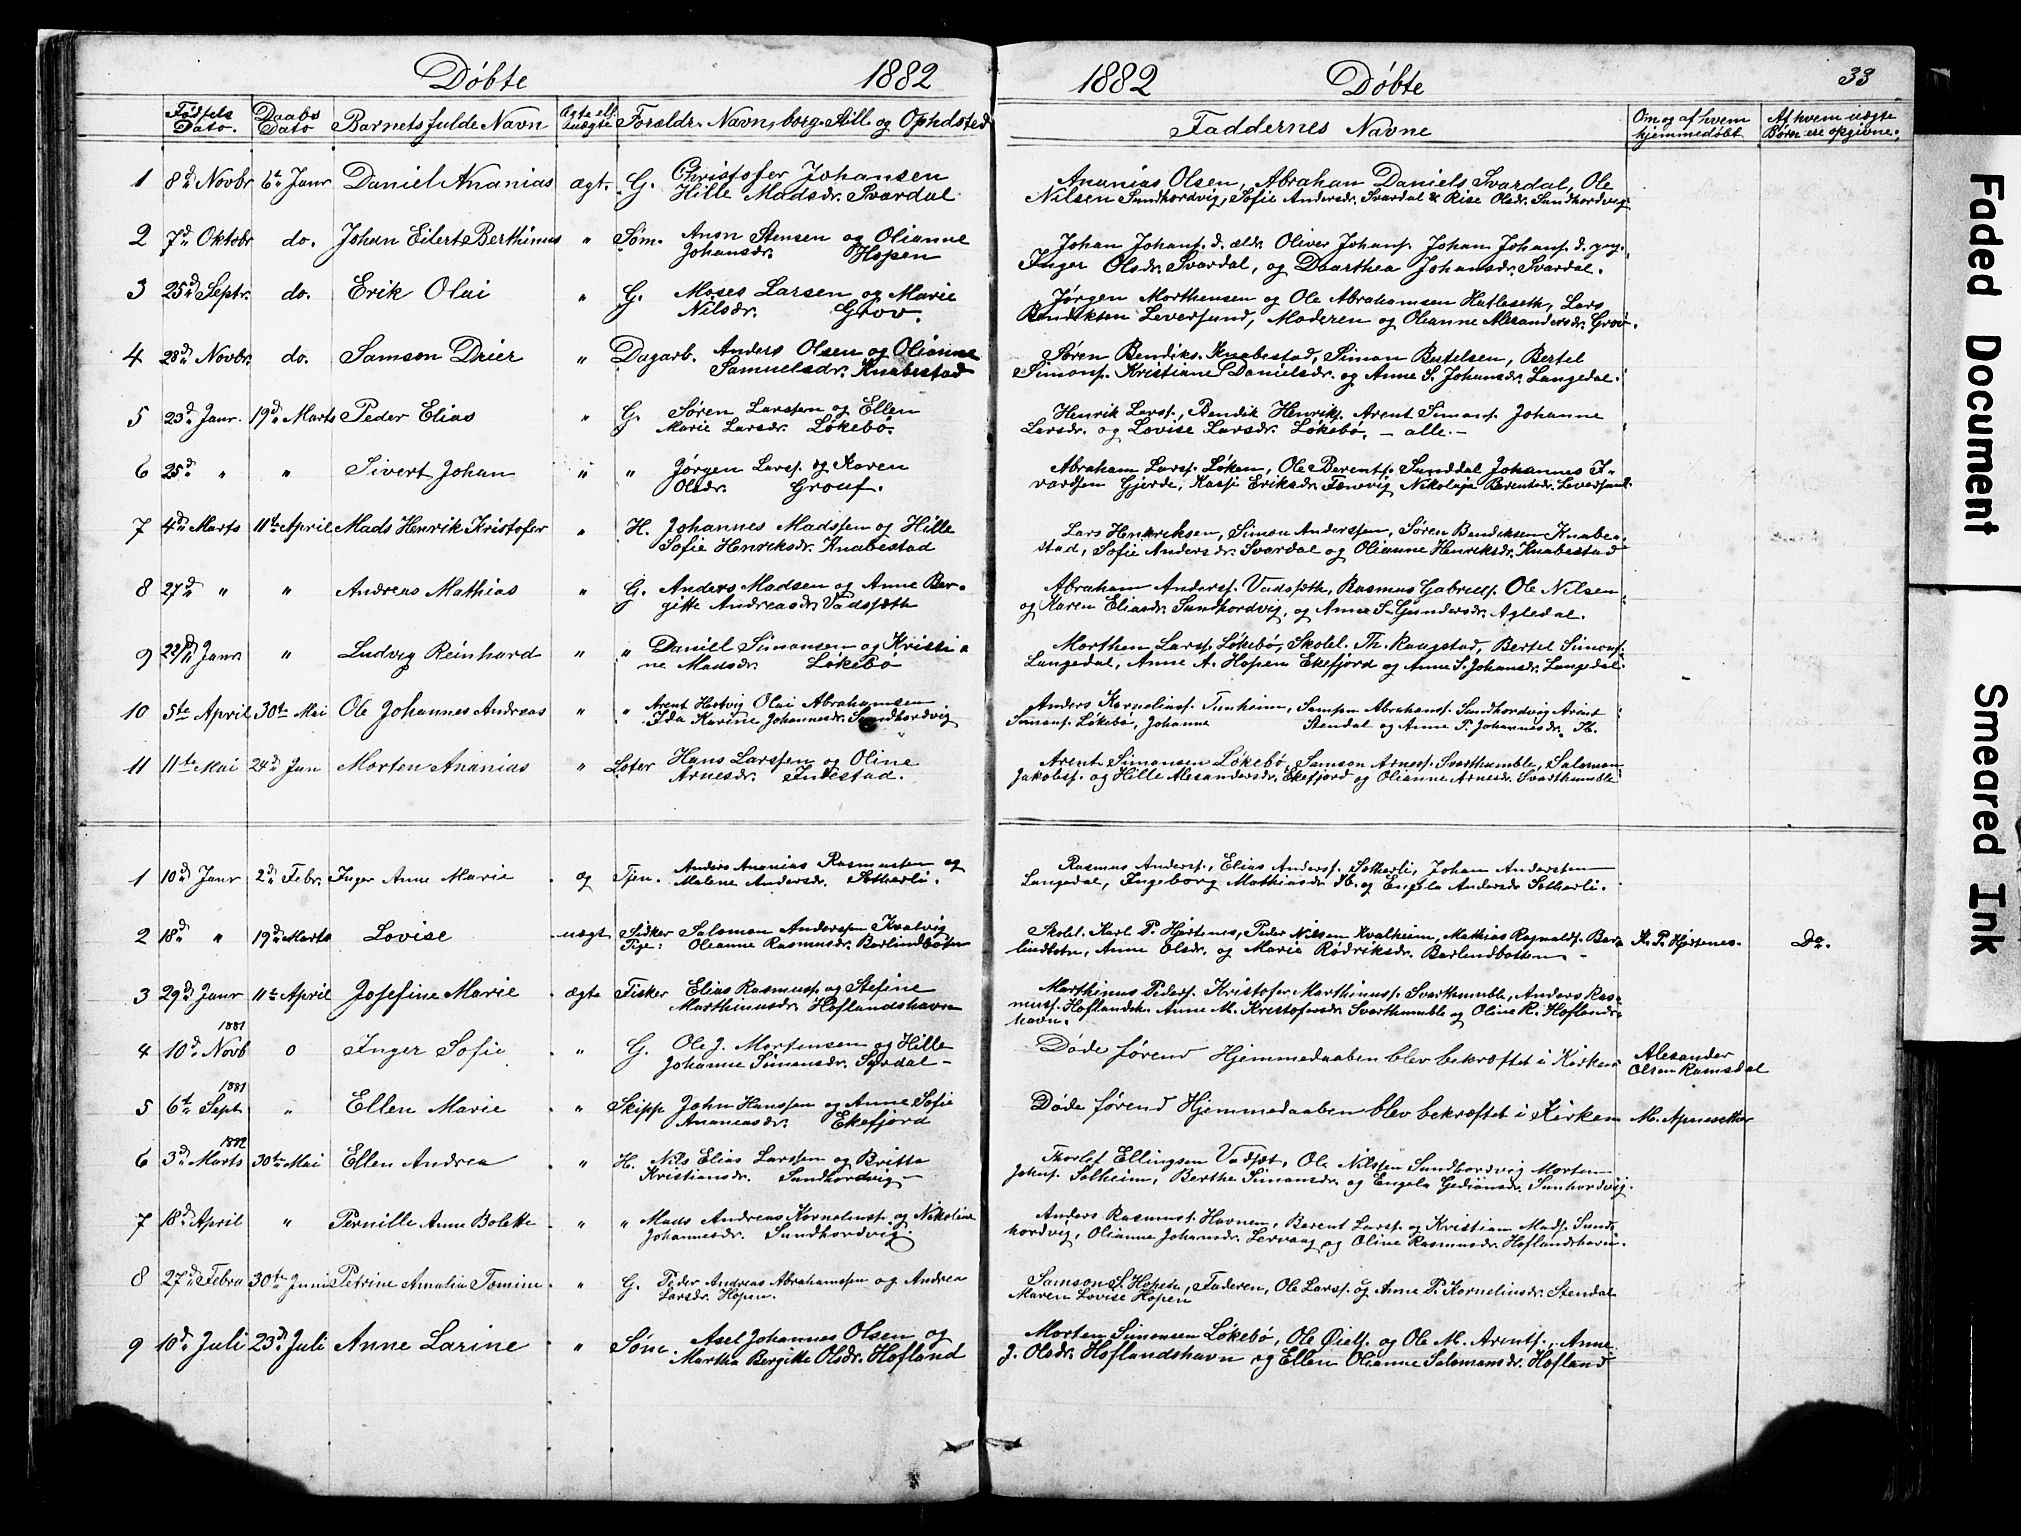 Døbte 1882
Fødsels Dato. Daabs Dato Barnets fulde Navn Ægte ell. Uægte Foraldr. Navn, borg. Still. og Opholdsted
1 8d Novbr 6te Janr Daniel Ananias ægt. G. Christofer Johansen
Hille Madsdr. Svardal
2 7d Oktobr do. Johan Eilert Berthinus " Søm. Anon Stensen og Olianne
Johansdr. Hopen
3 25d Septr. do. Erik Olai " G. Moses Larsen og Marie
Nilsdr. Grov.
4 28d Novbr. do. Samson Drier " Dagarb. Anders Olsen og Olianne
Samuelsdr. Knabestad
5 23d Janr. 19d Marts Peder Elias " G. Søren Larssen og Ellen
Marie Larsdr. Løkebø.
6 25d " " Sivert Johan " " Jørgen Larss. og Karen
Olsdr. Grouf.
7 4d Marts 11te April Mads Henrik Kristofer " H. Johannes Madssen og Hille
Sofie Henriksdr. Knabestad
8 27d " " Andreas Mathias " G. Anders Madsen og Anne Ber-
gitte Andreasdr. Vadsæth
9 22/d Janr. " Ludvig Reinhard " " Daniel Simonsen og Kristi-
ne Madsdr. Løkebø
10 5te April 30te Mai Ole Johannes Andreas " " Arent Hartvig Olai Abrahamsen
Ida Karine Johannesdr. Sundhordvig
11 11te Mai 24d Jun Morten Ananias " Loter Hans Larssen og Oline
Arnesdr. Indestad.
1 10d Janr 2d Febr. Inger Anne Marie og Tjen. Anders Ananias Rasmussen og
Malene Andersdr. Sætherli.
2 18d " 19d Marts Lovise uægt Fisker Salomon Anderssen Kvalvig
Pige: Olianne Rasmusdr. Barlindbotten
3 29d Janr 11te April Josefine Marie ægte Fisker Elias Rasmuss. og Stefine
Marthinusdr. Hoflandshavn
1881
4 10d Novb o Inger Sofie " G. Ole J. Mortensen og Hille
Johanne Simonsdr. Sørdal
1881
5 6te Sept " Ellen Marie " Skipp John Hanssen og Anne Sofie
Ananiasdr. Ekefjord
1882
6 3d Marts 30te Mai Ellen Andrea " H. Nils Elias Larssen og Britta
Kristiansdr. Sundhordvig
7 18d April " Pernille Anne Bolette " " Mads Andreas Korneliuss. og Nikoline
Johannesdr. Sundhordvig.
8 27d Febru 30te Juni Petrine Amalia Tomine " G. Peder Andreas Abrahamssen og Andrea
Larsdr. Hopen.
9 10d Juli 23d Juli Anne Larine " Søm. Axel Johannes Olsen og
Martha Bergitte Olsdr. Hofland
1882 Døbte 33
Faddernes Navne Om og af hvem hjemmedøbt Af hvem uægte Børn ere opgivne.
Ananias Olsen, Abraham Daniels Svardal, Ole
Nilsen Sundhordvig, Sofie Andersdr. Svardal & Rise Olsdr. Sundhordvig
Johan Johans. d. ældr. Oliver Johans. Johan Johans. d. yng.
Inger Olsdr. Svardal, og Daarthea Johansdr. Svardal.
Jørgen Morthensen og Ole Abrahamsen Hatleseth, Lars
Bendikten Leversund, Moderen og Olianne Alexandersdr. Grov.
Søren Bendiks. Knabestad, Simon Bertelsen, Bertel
Simons. Kristiane Danielsdr. og Anne S. Johansdr. Langedal.
Henrik Larss., Bendik Henriks. Arent Simons. Johanne
Larsdr. og Lovise Larsdr. Løkebø. - alle.-
Abraham Larss. Løken, Ole Berents. Sunddal Johannes I-
vardsen Gjerde, Eriksdr. Nikolaia Berentsdr. Leversund.
Lars Henriksen, Simon Anderssen, Søren Bendiksen Knabe-
stad, Sofie Andersdr. Svardal og Olianne Henriksdr. Knabestad
Abraham Anderss. Vadsæth, Rasmus Gabriels. Ole Nilsen
og Karen Eliasdr. Sundhordvig, og Anne S. Gundersdr. Agledal.
Morthen Larss. Løkebø, Skolel. Th. Raagstad, Bertel Simons.
Langedal, Anne A. Hopen Ekefjord og Anne S. Johansdr. Langedal.
Anders Korneliuss. Tunheim, Samson Abrahams. Sundhordvig Arent
Simons. Løkebø, Johanne Stendal og Anne P. Johannesdr. Ib.
Arent Simonsen Løkebø, Samson Arness. Svarthumble, Salomon
Jakobss. og Hille Alexandersdr. Ekefjord og Olianne Arnesdr. Svarthumble
Rasmus Anderss., Elias Anderss. Sætherli, Johan Andersen
Langedal, Ingeborg Mathiasdr. Ib. og Engela Andersdr Sætherli.
Skolel. Karl P. Hjertenes, Peder Nilsen Kvalheim, Mathias Regnalds. Bar- K. P. Hjertenes. Do.
lindbotn, Anne Olsdr. og Marie Rødriksdr. Barlendbotten
Marthinus Peders. Kristofer Marthinuss. Svarthumble, Anders Ras-
muss. Hoflandsh. Anne M. Kristofersdr. Svarthumble og Oline R. Hoflands-
havn.
Døde førend Hjemmedaaben blev bekræftet i Kirken Alexander
Olsen Ramsdal
Døde førend Hjemmedaaben blev bekræftet i Kirken M. Apnesether
Thorlef Ellingsen Vadsæt, Ole Nilssen Sundhordvig Morten
Johns. Solheim, Berthe Simonsdr. og Engela Gedionsdr. Sunhordvig.
Anders Rasmuss. Havnen, Berent Larss. og Kristian Mads. Sund-
hordvig, Olianne Johansdr. Lervaag og Oline Rasmusdr. Hoflandshavn.
Samson S. Hopen, Faderen, Ole Larss. og Anne P. Kornelinsdr. Stendal
Maren Lovise Hopen
Morten Simonsen Løkebø, Ole Øiels. og Ole M. Arents. Anne
J. Olsdr. Hoflandshavn og Ellen Olianne Salomonsdr. Hofland
Faded Document
Smeared Ink